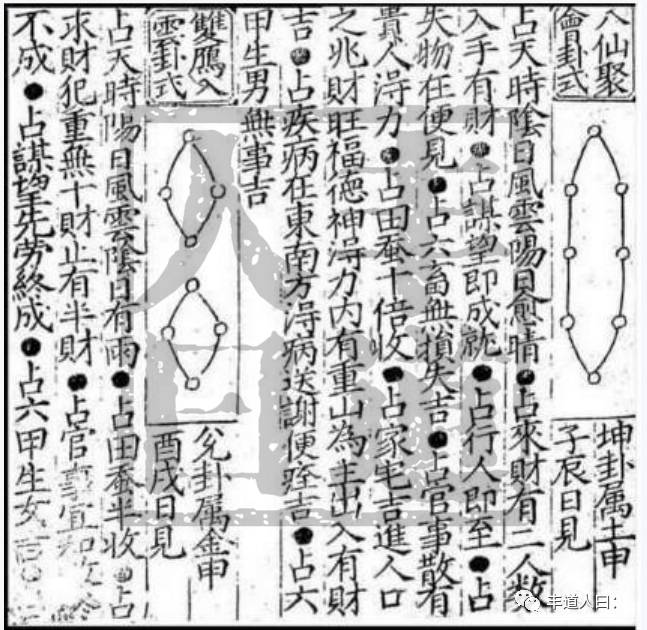 八仙聚
會卦式
坤卦属土申
子辰日見
占天時陰日風雲陽日愈晴●占來財有二人数
入手有財●占謀望即成就●占行人即至●占
失物在便見●占六畜無損失吉●占官事散有
貴人得力●占田蚕十倍收●占家宅吉進人口
之兆財旺福德神得力内有重山為主出入有財
吉●占疾病在東南方得病送謝便痊吉●占六
甲生男無事吉
雙鴈入
雲卦式
兊卦属金申
酉戌日見
占天時陽日風雲陰日有雨●占田蚕半收●占
求財犯重無十財止有半財●占官事宜和
不成●占謀望先勞終成●占六甲生女
丰道人曰
丰道人曰：